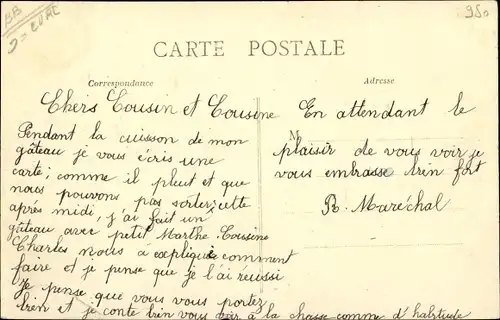 BB
350
CARTE POSTALE
Correspondance
Adresse
M
Chers Cousin et Cousine
Pendant la cuisson de mon
gâteau je vous écris une
carte; comme il pleut et que
nous pouvons pas sortir cette
après midi, j'ai fait un
gâteau avec petit Marthe. Cousine
Charles nous à expliquée comment
faire et je pense que je l'ai réussi
Je pense que vous vous portez
bien et je conte bien vous voir à la chasse comme d'habitude
En attendant le
plaisir de vous voir je
vous embrasse bien fort
R. Maréchal